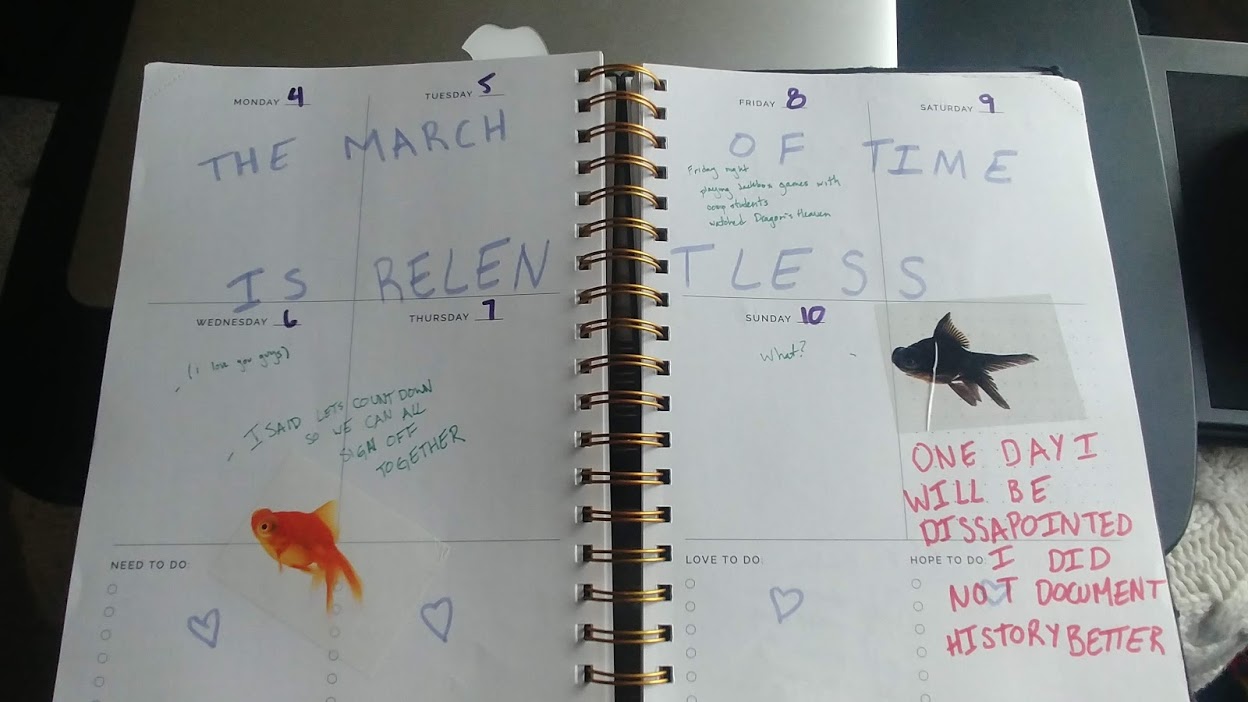 MONDAY 4
TUESDAY 5
FRIDAY 8
SATURDAY 9
THE MARCH OF TIME
Friday night
playing Jackbox games with
comp students
watched Dragon's Heaven
IS RELENTLESS
WEDNESDAY 6
THURSDAY 7
SUNDAY 10
(i love you guys)
What?
I SAID LETS COUNT DOWN
SO WE CAN ALL
SIGN OFF
TOGETHER
ONE DAY I
WILL BE
DISSAPOINTED
I DID
NOT DOCUMENT
HISTORY BETTER
NEED TO DO:
LOVE TO DO:
HOPE TO DO: